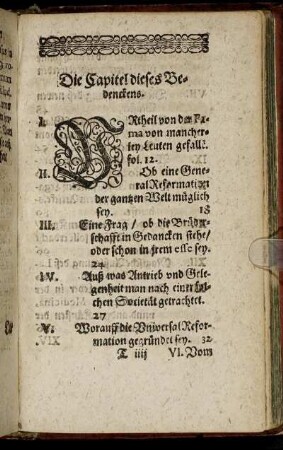 Die Capitel dieses Be-
denckens.
I. VRtheil von der Fa-
ma von mancher-
ley Leuten gefallt.
fol. 12.
II. Ob eine Gene
ral Reformation
der gantzen Welt müglich
sey. 18
III. Eine Frag / ob die Brüder-
schafft in Gedancken stehe/
oder schon in jrem esse sey.
24
IV. Auß was Antrieb vnd Gele-
genheit man nach einer sol-
chen Societät getrachtet.
27
V. Worauff die Vniversal Refor-
mation gegründet sey. 32
T iiij VI. Vom